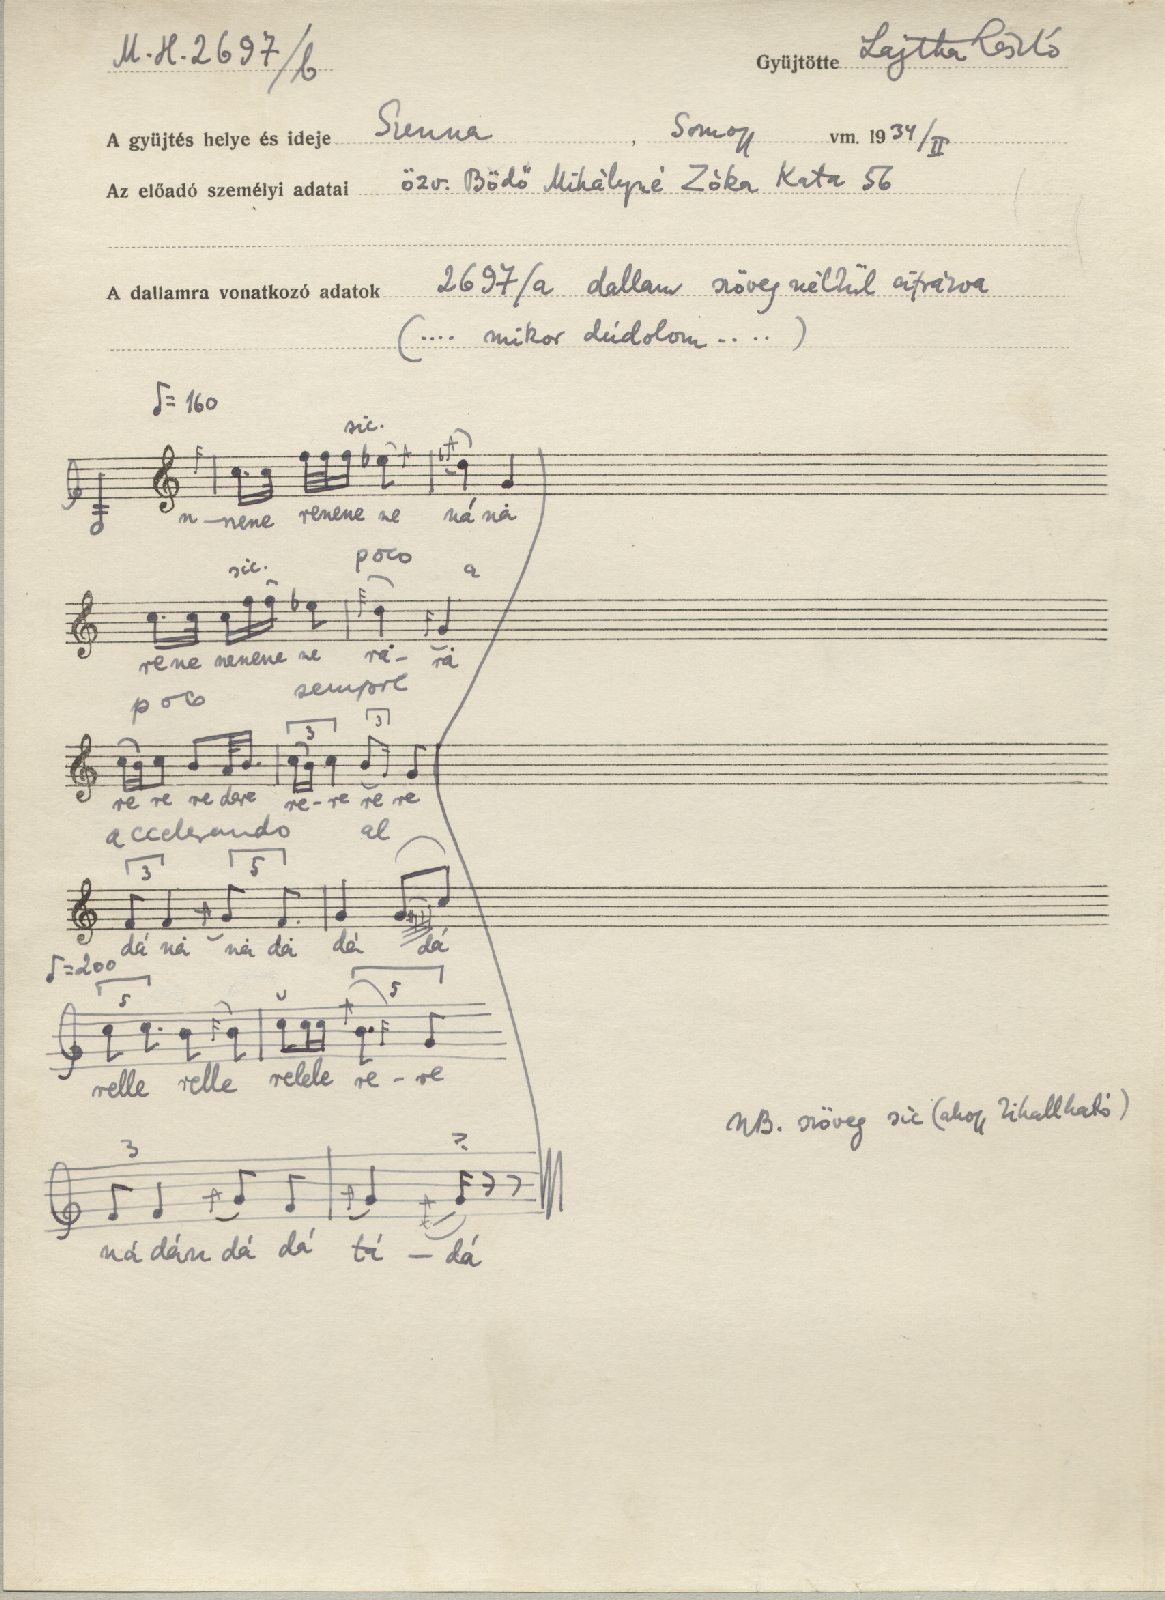 M.H.2697/b
Gyüjtötte Lajtha László
A gyüjtés helye és ideje Szenna, Somogy vm. 1934/II
Az előadó személyi adatai özv. Bödő Mihályné Zóka Kata 56
A dallamra vonatkozó adatok 2697/a dallam szöveg nélkül cifrázva
(.... mikor dúdolom ....)
♪= 160
sic.
n - nene renene ne ná ná
sic. poco a
rene nenene ne rá- rá
poco sempre
3 3
re re re dere re-re re re
accelerando al
3 5
dá ná ná dá dá dá
♪=200
5 5
relle relle relele re - re
NB. szöveg sic (ahogy kihallható)
3
ná dán dá dá tá - dá